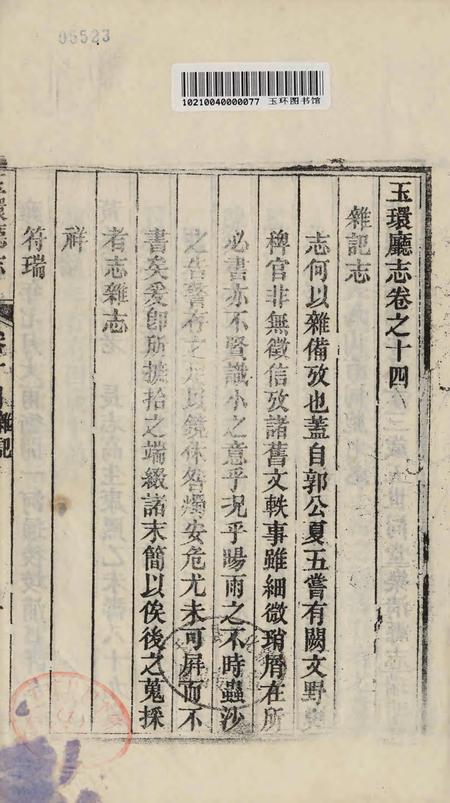 05523
10210040000077 玉环图书馆
玉環廳志卷之十四
雜記志
志何以雜備攷也蓋自郭公夏五嘗有闕文野史
稗官非無徵信攷諸舊文軼事雖細微瑣屑在所
必書亦不賢識小之意乎況乎暘雨之不時蟲沙
之告警存之足以鏡休咎燭安危尤未可屏而不
書矣爰卽所摭拾之端綴諸末簡以俟後之蒐採
者志雜志
祥
符瑞
玉環廳志
卷十四 雜記
一